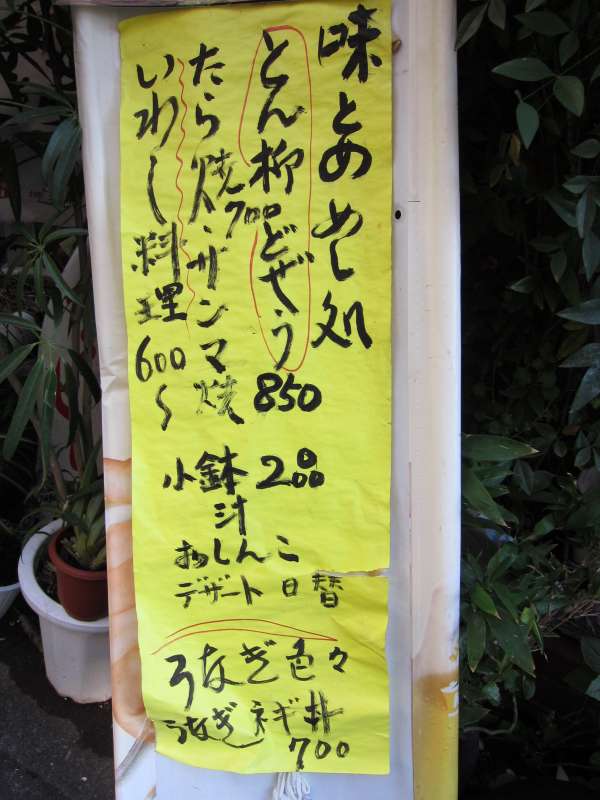 味とめめし処
とん柳どぜう
850
たら焼700 サンマ焼
いわし料理
600〜
小鉢200
汁
おしんこ
デザート日替
うなぎ色々
うなぎネギ丼
700